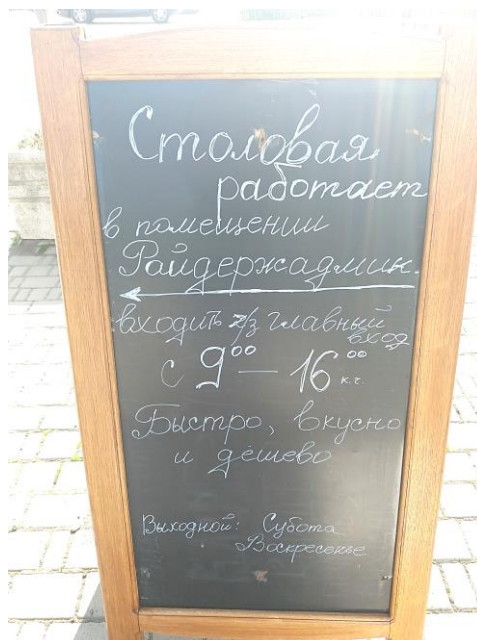 Столовая
работает
в помещении
Райдержадмин.
входить ч/з главный
вход
с 9⁰⁰ — 16⁰⁰ к.г.
Быстро, вкусно
и дёшево
Выходной: Суббота
Воскресенье